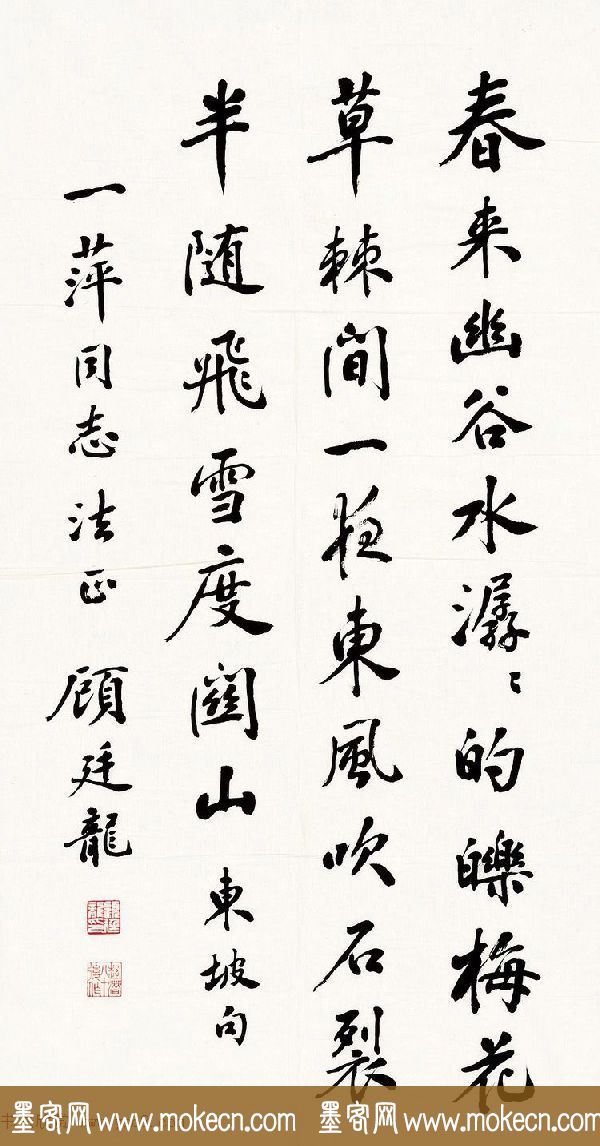 春来幽谷水潺〻的皪梅花
草棘間一夜東風吹石裂
半随飛雪度關山 東坡句
一萍同志法正 顧廷龍
墨客网 www.mokecn.com 墨客网 www.mokecn.com